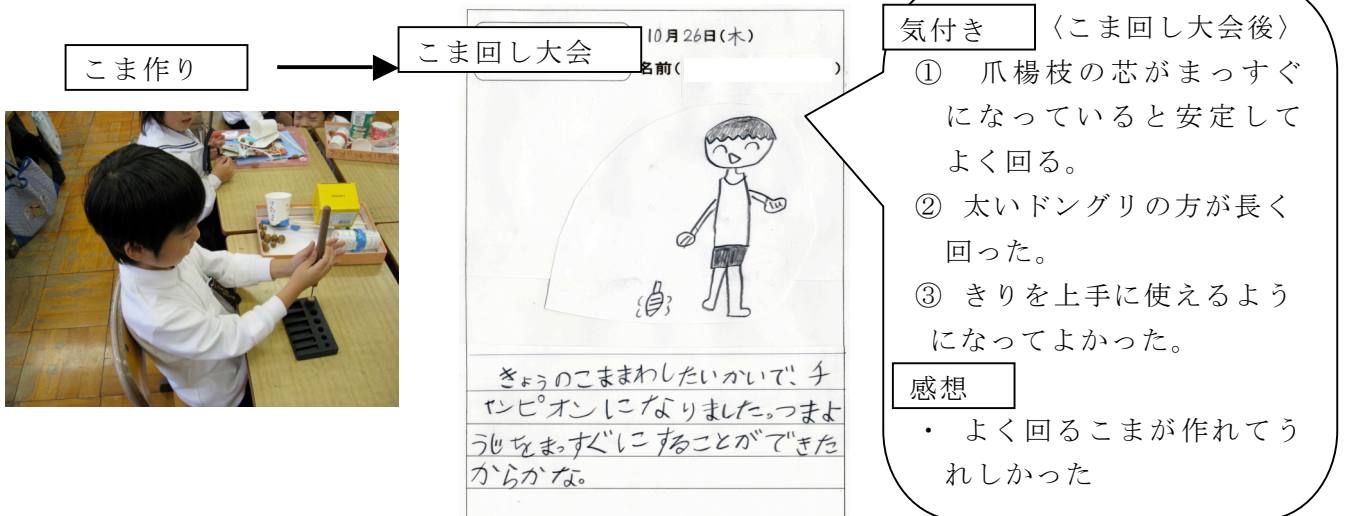 こま作り
こま回し大会
10月26日(木)
名前( )
きょうのこままわしたいかいで、チ
ャンピオンになりました。つまよ
うじをまっすぐにすることができた
からかな。
気付き 〈こま回し大会後〉
① 爪楊枝の芯がまっすぐ
になっていると安定して
よく回る。
② 太いドングリの方が長く
回った。
③ きりを上手に使えるよう
になってよかった。
感想
・ よく回るこまが作れてう
れしかった